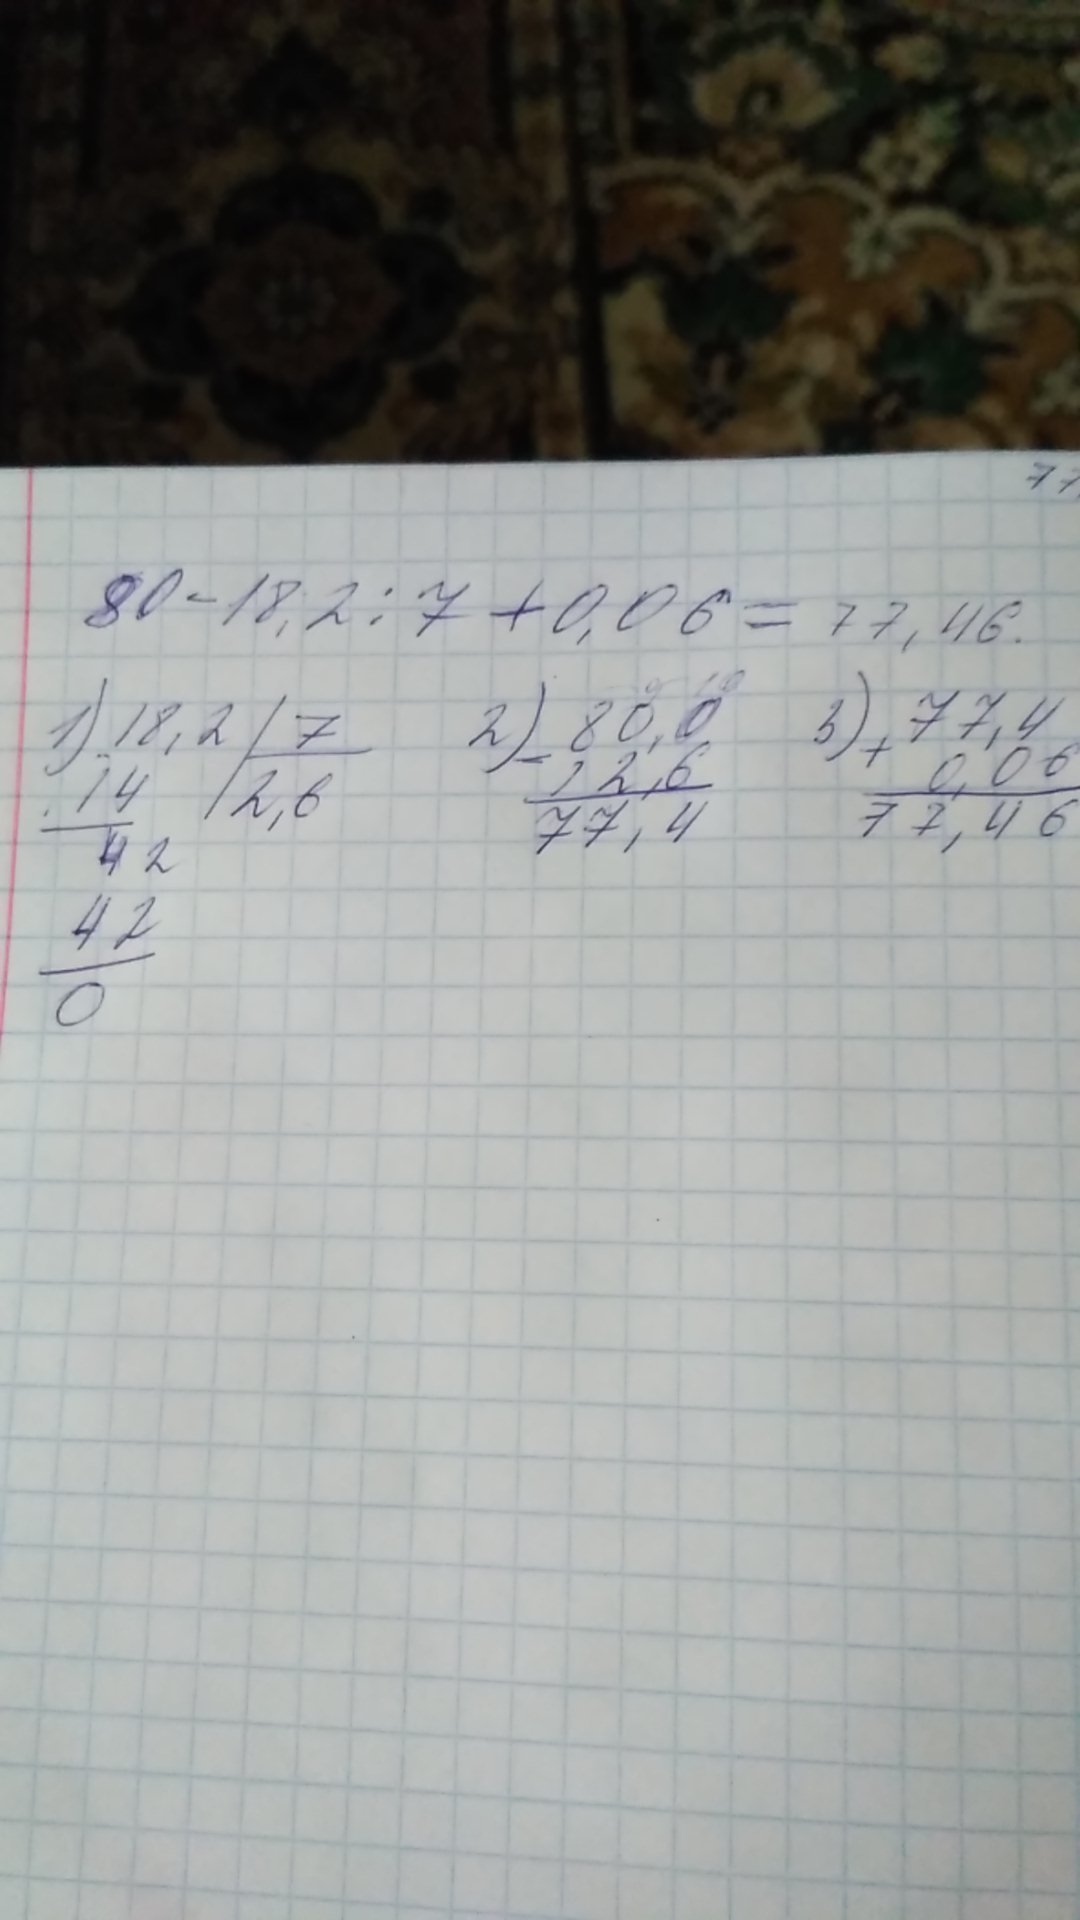 77,
80-18,2:7+0,06=77,46.
1) 18,2 | 7 2) 80,0 3) 77,4
- 14 | 2,6 - 12,6 + 0,06
42 77,4 77,46
42
0